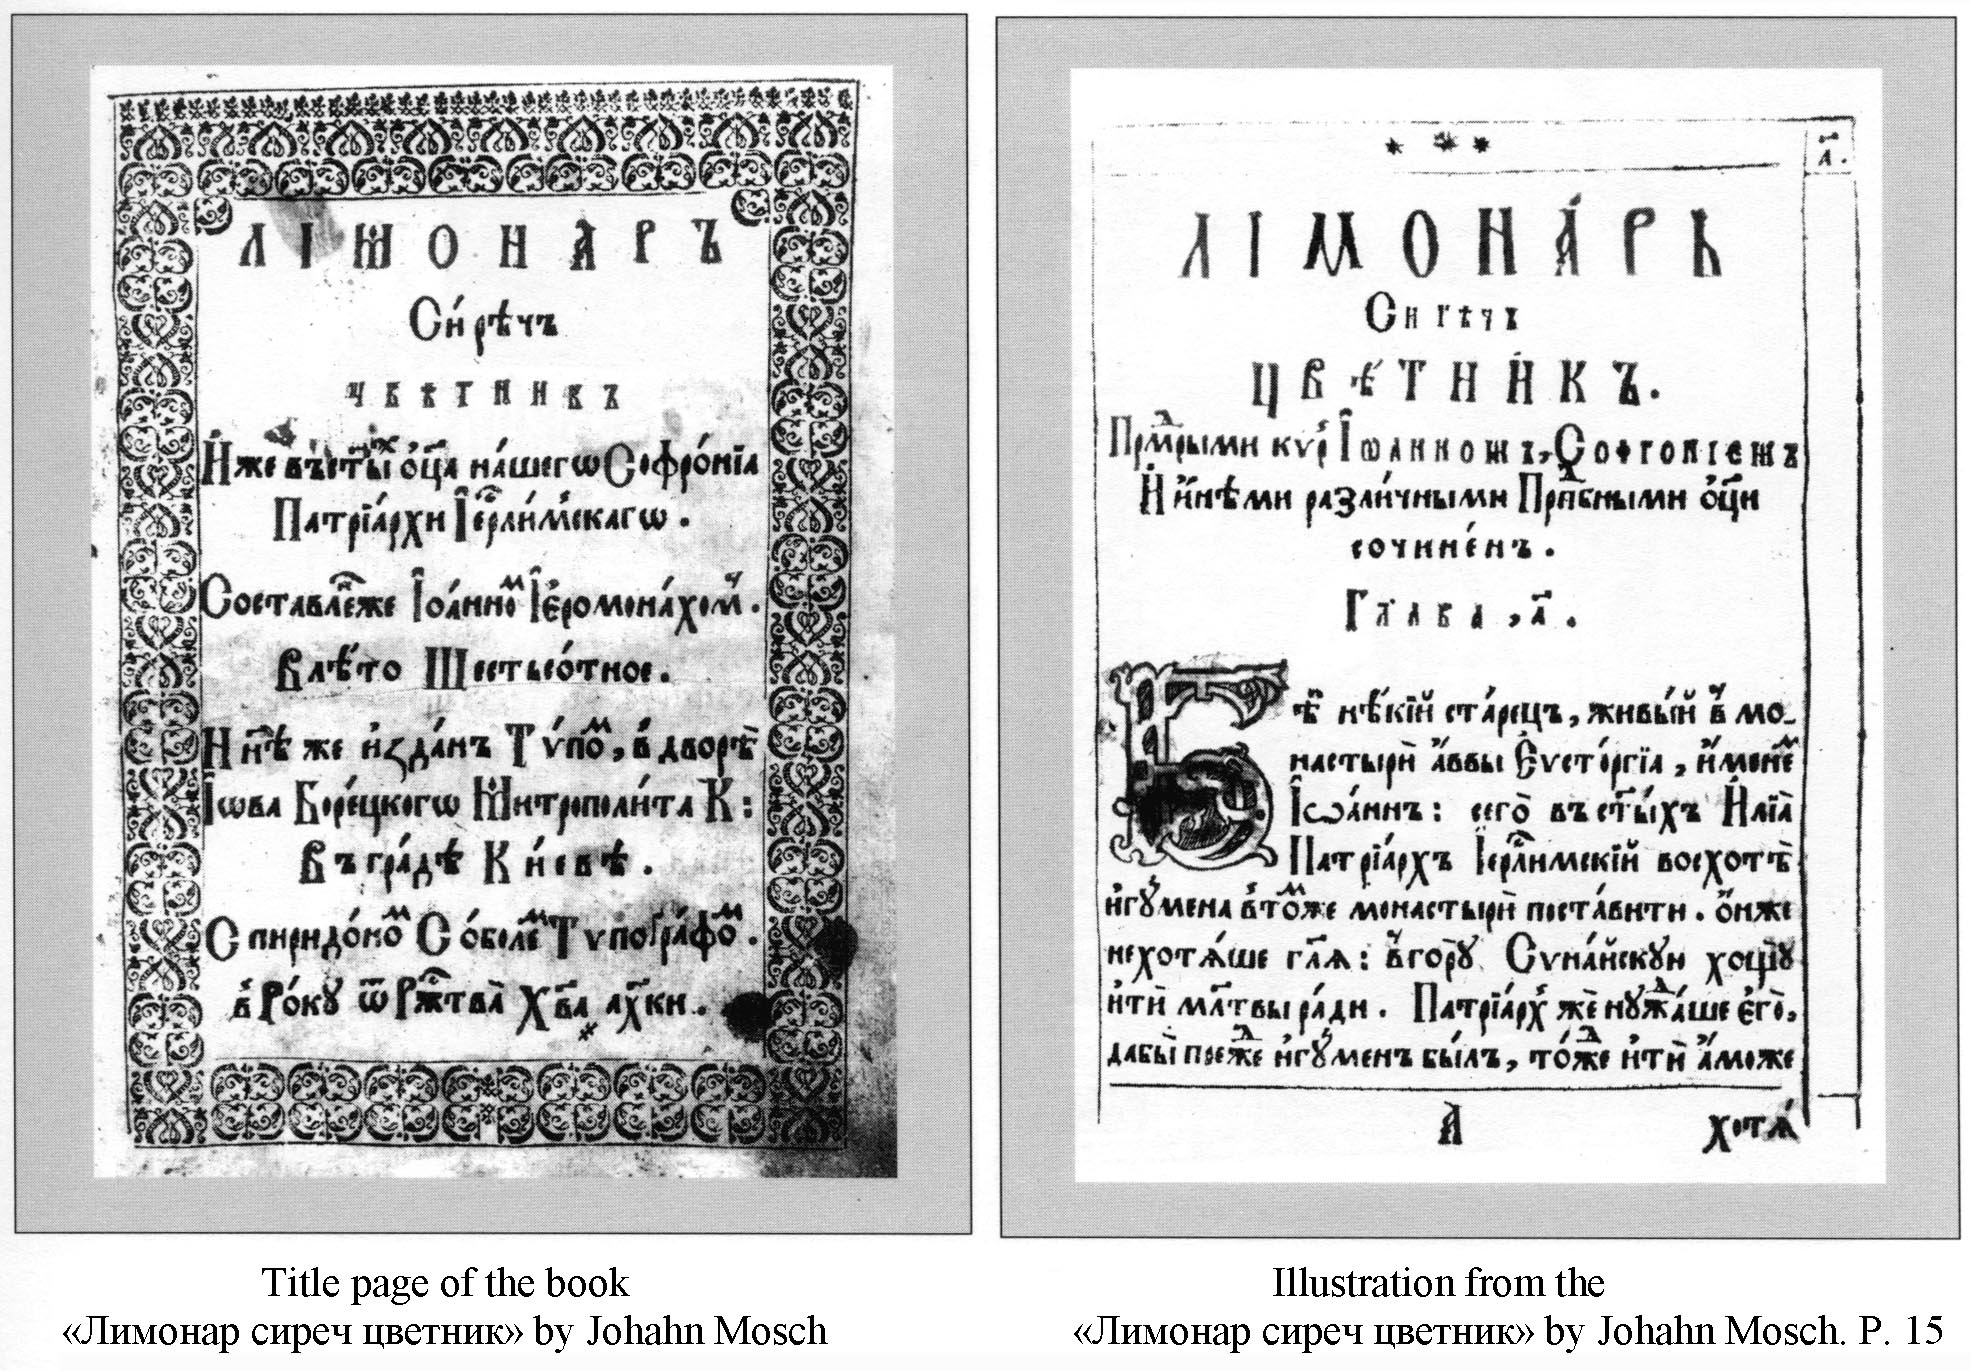 ЛІМОНАРЪ
Си́рѣчъ
ЦВѢТНИКЪ
И́же въ ст҃ы́хъ ѻ҆ц҃а на́шегѡ Софро́нїа
Патрїа́рхи І҆ер҇ли́мскагѡ.
Составле́нже І҆ѡа́нномъ І҆еромона́хомъ.
В лѣ́то Шестьсо́тное.
Нн҃ѣ же и҆зда́нъ Тѵ́помъ, в дворѣ̀
І҆ѡва Боре́цкогѡ Митрополи́та К:
Въ гра́дѣ Кі́евѣ.
Спиридо́номъ Со́болемъ Тѵпогра́фомъ.
в Ро́кꙋ ѿ Рж҇тва̀ Хв҃а ахкн.
* * *
а҃.
ЛІМОНА́РЬ
Сирѣчъ
ЦВѢ́ТНИ́КЪ.
Прмдрыми кѵр І҆ѡанномъ, Софронїемъ
И и҆нѣми разли́чными Прпдбными ѻ҆ц҃и
сочине́нъ.
Глава, а҃.
Бѣ̀ нѣ́кїй ста́рецъ, живы́й в мо-
настырѝ а҆́ввы Є҆ѵсто́ргїа, и҆́менемъ
І҆ѡа́ннъ: сего̀ въ ст҃ы́хъ Илїа̀
Патрїа́рхъ І҆ерли҇мскїй восхотѣ̀
и҆гꙋ́мена в то́мже монастырѝ поста́вити. ѻ҆́нже
не хотѧ́ше гл҃ѧ: в го́рꙋ Сѵна́йскꙋю хощꙋ̀
и҆тѝ мл҃твы ра́ди. Патрїа́рхъ же нꙋжда́ше є҆го̀,
дабы̀ пре́жде и҆гꙋ́менъ бы́лъ, то́жде и҆тѝ а҆́може
А
хотѧ́
Title page of the book
«Лимонар сиреч цветник» by Johahn Mosch
Illustration from the
«Лимонар сиреч цветник» by Johahn Mosch. P. 15